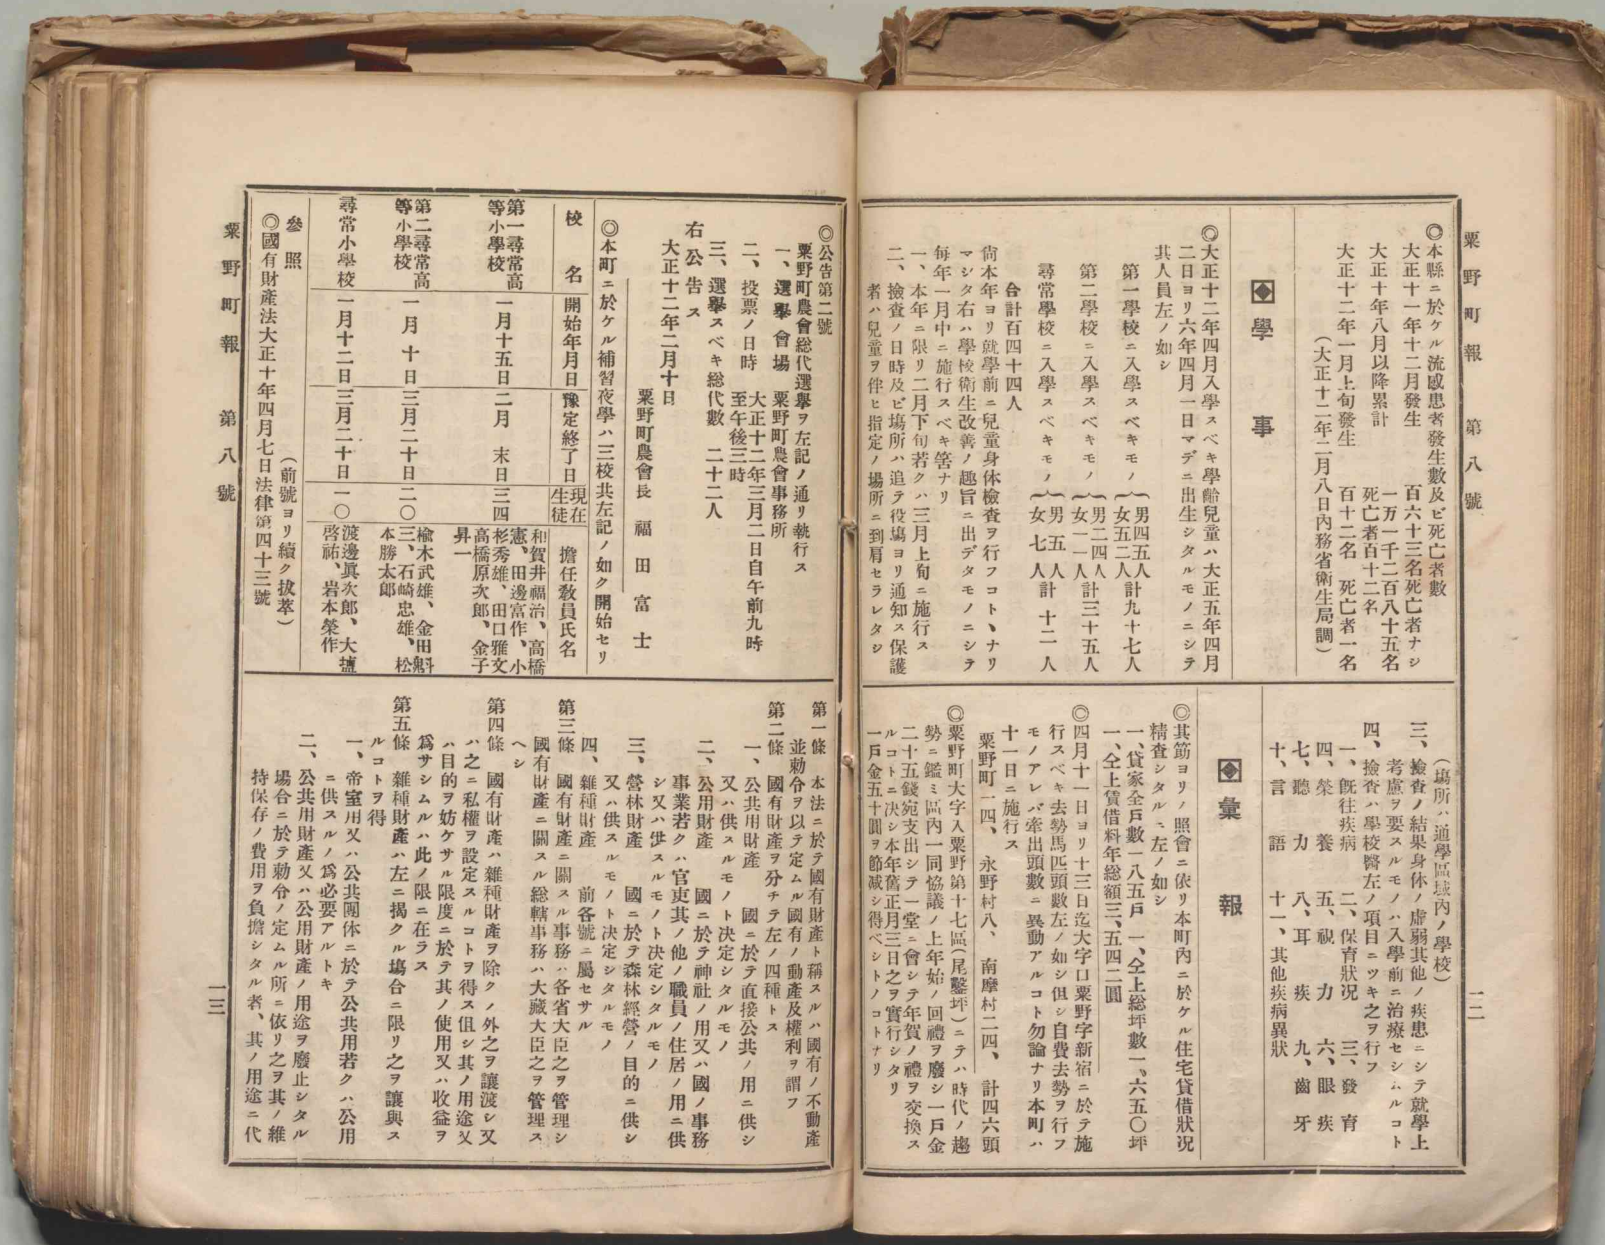 粟野町報　第八號
◎本縣ニ於ケル流感患者發生數及ビ死亡者數
大正十一年十二月發生　百六十三名死亡者ナシ
大正十年八月以降累計　一万一千二百八十五名
死亡者百十二名
大正十二年一月上旬發生　百十二名　死亡者一名
（大正十二年二月八日内務省衛生局調）
學事
◎大正十二年四月入學スベキ學齡兒童ハ大正五年四月
二日ヨリ六年四月一日マデニ出生シタルモノニシテ
其人員左ノ如シ
第一學校ニ入學スベキモノ｛男四五人
女五二人　計九十七人
第二學校ニ入學スベキモノ｛男二四人
女一一人　計三十五人
尋常學校ニ入學スベキモノ｛男五人
女七人　計十二人
合計百四十四人
尙本年ヨリ就學前ニ兒童身体檢査ヲ行フコトヽナリ
マシタ右ハ學校衛生改善ノ趣旨ニ出デタモノニシテ
每年一月中ニ施行スベキ筈ナリ
一、本年ニ限リ二月下旬若クハ三月上旬ニ施行ス
二、檢查ノ日時及ビ場所ハ追テ役塲ヨリ通知ス保護
者ハ兒童ヲ伴ヒ指定ノ場所ニ到肩セラレタシ
（塲所ハ通學區域內ノ學校）
三、檢查ノ結果身体ノ虛弱其他ノ疾患ニシテ就學上
考慮ヲ要スルモノハ入學前ニ治療セシムルコト
四、檢查ハ學校醫左ノ項目ニツキ之ヲ行フ
一、旣往疾病　二、保育狀況　三、發育
四、榮養　五、視力　六、眼疾
七、聽力　八、耳疾　九、齒牙
十、言語　十一、其他疾病異狀
彙報
◎其筋ヨリノ照會ニ依リ本町內ニ於ケル住宅貸借狀況
精查シタルニ左ノ如シ
一、貸家全戶數一八五戶　一、仝上総坪數一、六五〇坪
一、仝上賃借料年総額三、五四二圓
◎四月十一日ヨリ十三日迄大字口粟野字新宿ニ於テ施
行スベキ去勢馬匹頭數左ノ如シ但シ自費去勢ヲ行フ
モノアレバ牽出頭數ニ異動アルコト勿論ナリ本町ハ
十一日ニ施行ス
粟野町一四、永野村八、南摩村二四、計四六頭
◎粟野町大字入粟野第十七區（尾鑿坪）ニテハ時代ノ趨
勢ニ鑑ミ區内一同協議ノ上年始ノ回禮ヲ廢シ一戶金
二十五錢宛支出シテ一堂ニ會シテ年賀ノ禮ヲ交換ス
ルコトニ决シ本年舊正月三日之ヲ實行シタリ
一戶金五十圓ヲ節減シ得ベシトノコトナリ
一二
◎公告第二號
粟野町農會総代選擧ヲ左記ノ通リ執行ス
一、選擧會場　粟野町農會事務所
二、投票ノ日時　大正十二年三月二日自午前九時
至午後三時
三、選擧スベキ総代數　二十二人
右公告ス
大正十二年二月十日
粟野町農會長　福田富士
◎本町ニ於ケル補習夜學ハ三校共左記ノ如ク開始セリ
校名　開始年月日　豫定終了日　現在生徒　擔任教員氏名
第一尋常高等小學校　一月十五日　二月末日　三四　和賀井福治、高橋憲、田邊富作、小杉秀雄、田口雅文高橋原次郎、金子昇一
第二尋常高等小學校　一月十日　三月二十日　二〇　楡木武雄、金田魁三、石崎忠雄、松本勝太郎
尋常小學校　一月十二日　三月二十日　一〇　渡邊眞次郎、大塩啓祐、岩本榮作
參照　（前號ヨリ續ク拔萃）
◎國有財產法大正十年四月七日法律第四十三號
第一條　本法ニ於テ國有財產ト稱スルハ國有ノ不動產
並勅令ヲ以テ定ムル國有ノ動產及權利ヲ謂フ
第二條　國有財產ヲ分チテ左ノ四種トス
一、公共用財產　國ニ於テ直接公共ノ用ニ供シ
又ハ供スルモノト決定シタルモノ
二、公用財產　國ニ於テ神社ノ用又ハ國ノ事務
事業若クハ官吏其ノ他ノ職員ノ住居ノ用ニ供
シ又ハ供スルモノト决定シタルモノ
三、營林財產　國ニ於テ森林經營ノ目的ニ供シ
又ハ供スルモノト决定シタルモノ
四、雜種財產　前各號ニ屬セサル
第三條　國有財產ニ關スル事務ハ各省大臣之ヲ管理シ
國有財產ニ關スル総轄事務ハ大藏大臣之ヲ管理ス
ヘシ
第四條　國有財產ハ雜種財產ヲ除クノ外之ヲ讓渡シ又
ハ之ニ私權ヲ設定スルコトヲ得ス但シ其ノ用途又
ハ目的ヲ妨ケサル限度ニ於テ其ノ使用又ハ收益ヲ
爲サシムルハ此ノ限ニ在ラス
第五條　雜種財產ハ左ニ揭クル塲合ニ限リ之ヲ讓與ス
ルコトヲ得
一、帝室用又ハ公共團体ニ於テ公共用若クハ公用
ニ供スルノ爲必要アルトキ
二、公共用財產又ハ公用財產ノ用途ヲ廢止シタル
塲合ニ於テ勅令ノ定ムル所ニ依リ之ヲ其ノ維
持保存ノ費用ヲ負擔シタル者、其ノ用途ニ代
粟野町報　第八號
一三